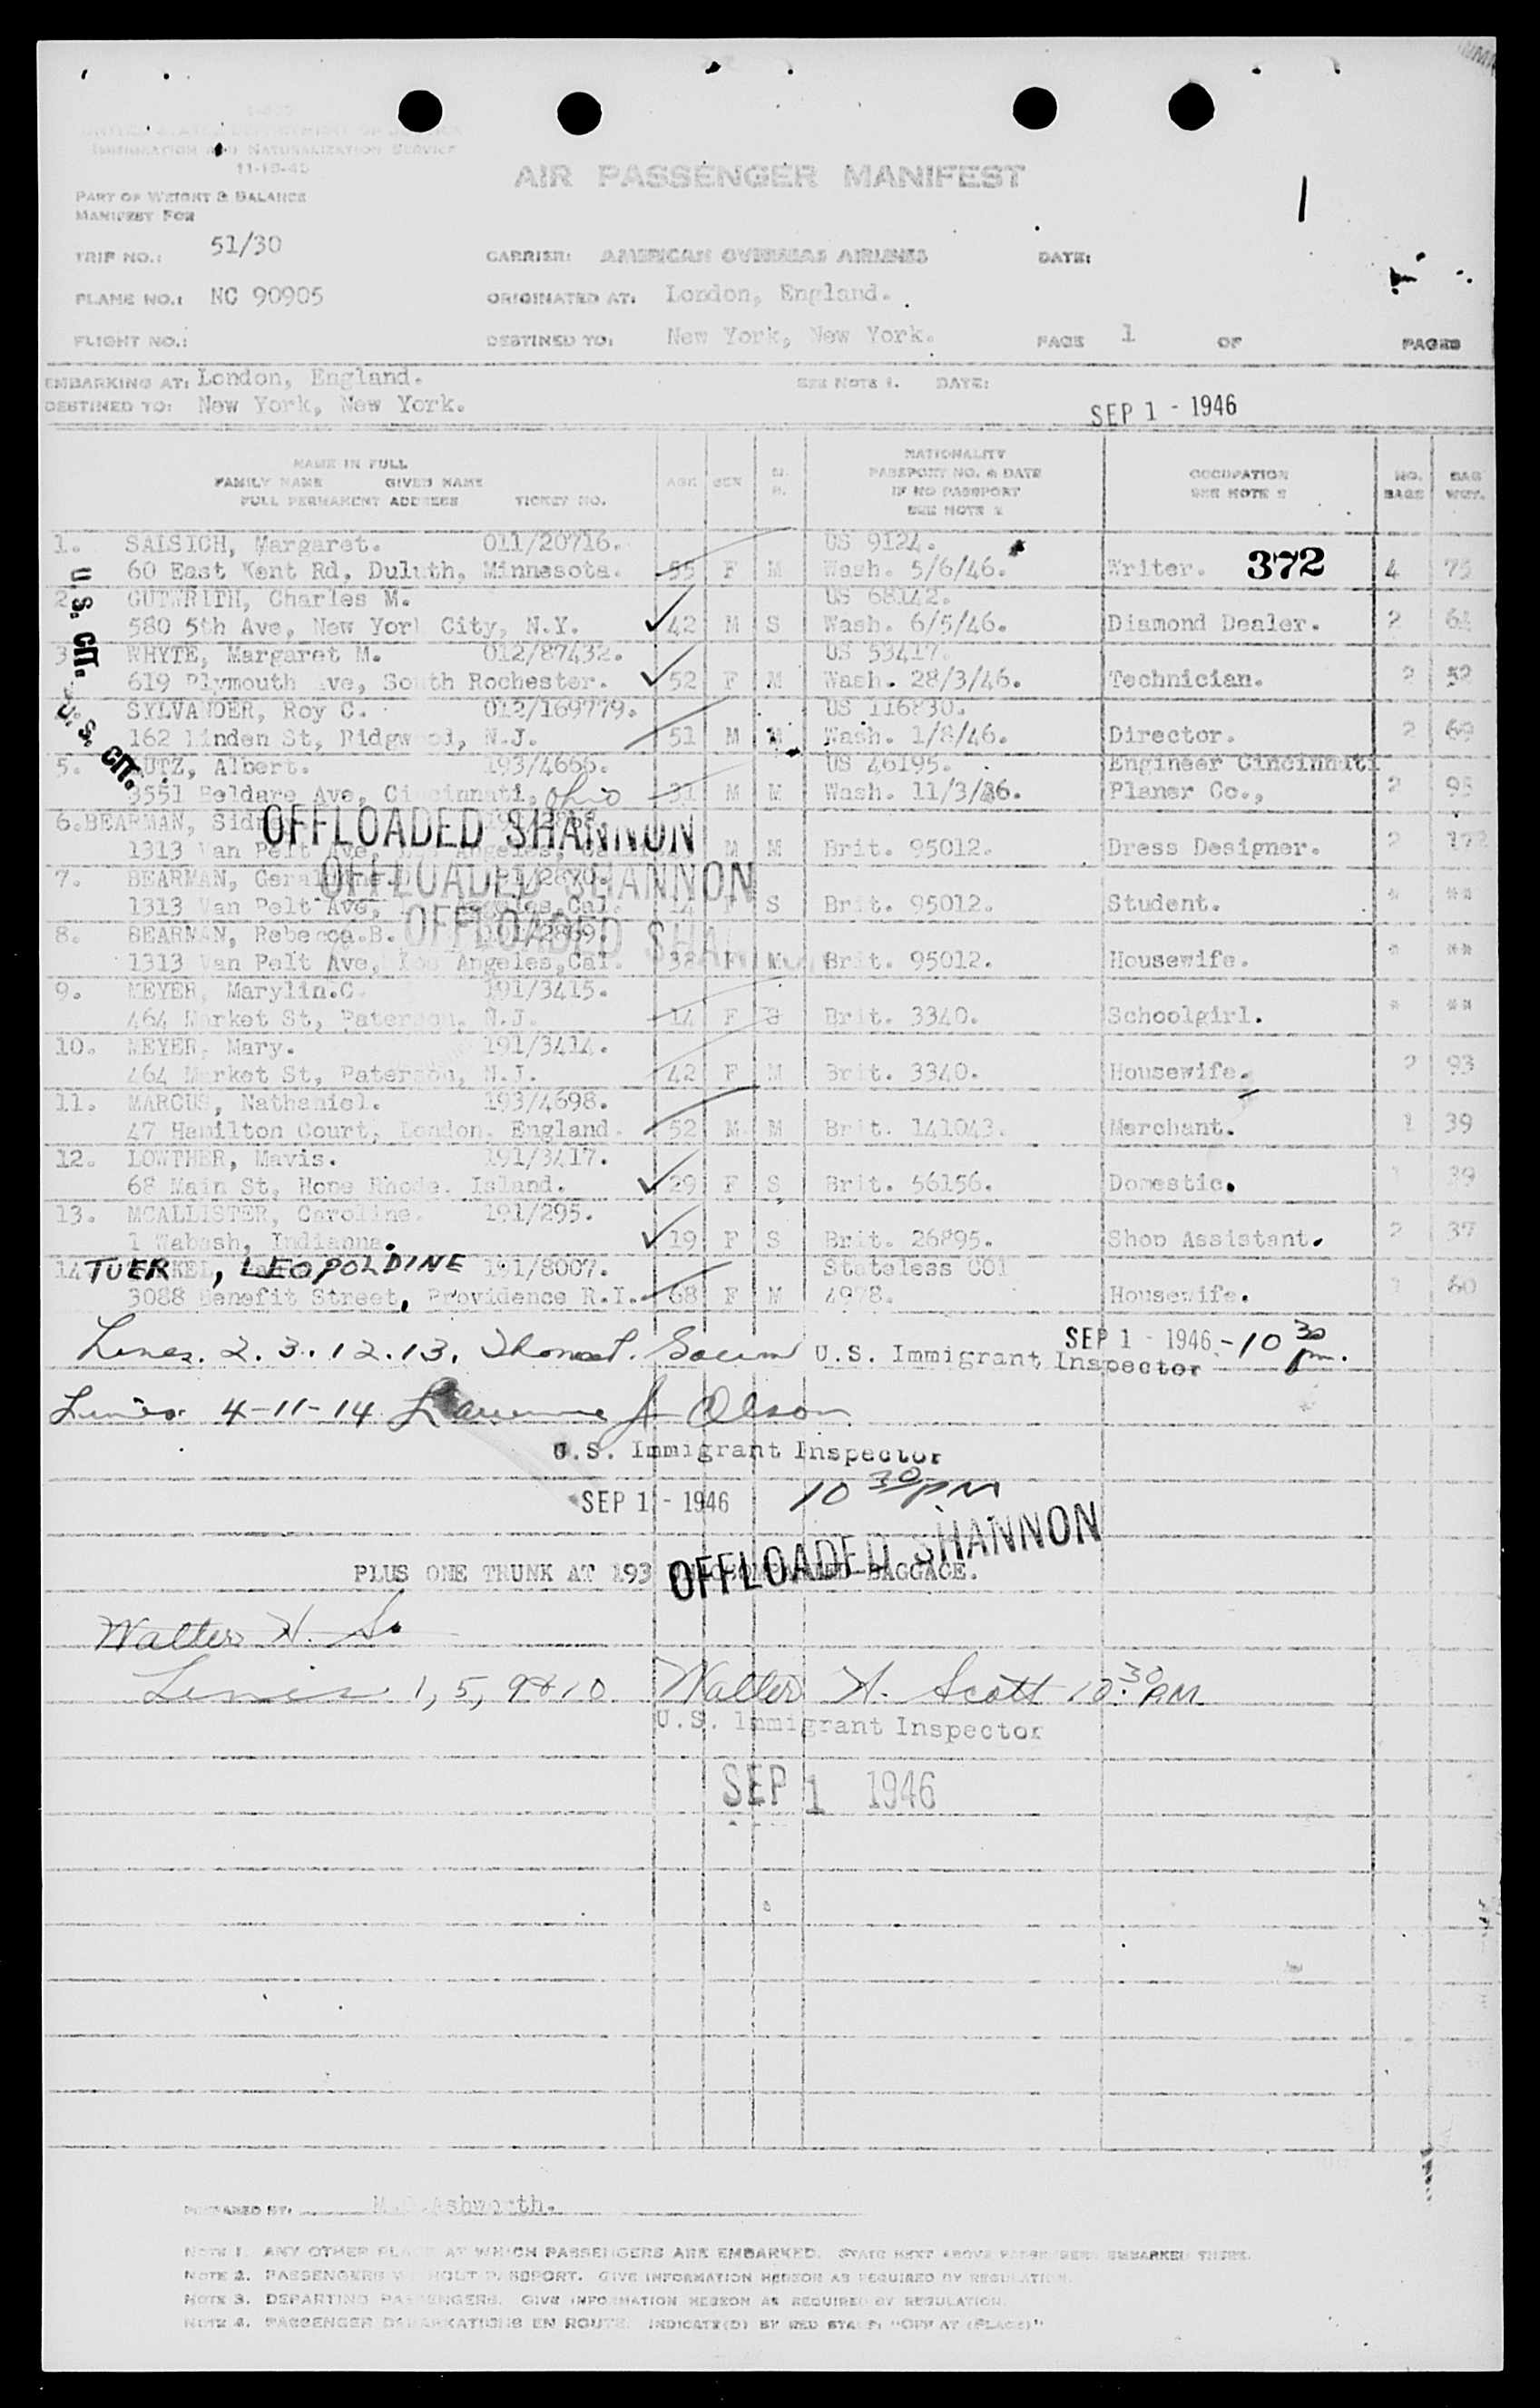 UNITED STATES DEPARTMENT OF JUSTICE
IMMIGRATION AND NATURALIZATION SERVICE
11-15-45
AIR PASSENGER MANIFEST
PART OF WEIGHT & BALANCE
MANIFEST FOR
1
TRIP NO.: 51/30 CARRIER: AMERICAN OVERSEAS AIRLINES DATE:
PLANE NO.: NC 90905 ORIGINATED AT: London, England.
FLIGHT NO.: DESTINED TO: New York, New York. PAGE 1 OF PAGES
EMBARKING AT: London, England. SEE NOTE 1. DATE:
DESTINED TO: New York, New York. SEP 1 - 1946
NAME IN FULL
FAMILY NAME GIVEN NAME
FULL PERMANENT ADDRESS TICKET NO. AGE SEX
NATIONALITY
PASSPORT NO. & DATE
IF NO PASSPORT
SEE NOTE 2
OCCUPATION
SEE NOTE 2
NO.
BAGS
BAG
WGT.
1. SALSICH, Margaret. 011/20716. US 9124.
60 East Kent Rd, Duluth, Minnesota. 55 F M Wash. 5/6/46. Writer. 372 4 75
2. GUTWRITH, Charles M. US 68142.
580 5th Ave, New York City, N.Y. 42 M S Wash. 6/5/46. Diamond Dealer. 2 64
3 WHYTE, Margaret M. 012/87432. US 53417.
619 Plymouth Ave, South Rochester. 52 F M Wash. 28/3/46. Technician. 2 52
SYLVANDER, Roy C. 012/169779. US 116830.
162 Linden St, Ridgwood, N.J. 51 M M Wash. 1/8/46. Director. 2 69
U.S. CIT.
U.S. CIT.
5. LUTZ, Albert. 193/4666. US 46195. Engineer Cincinnati
9551 Beldare Ave, Cincinnati, Ohio 31 M M Wash. 11/3/46. Planer Co., 2 95
6. BEARMAN, OFFLOADED SHANNON
1313 Van Pelt Ave, Los Angeles, M M Brit. 95012. Dress Designer. 2
7. BEARMAN, OFFLOADED SHANNON
1313 Van Pelt Ave, Angeles, Cal. 14 F S Brit. 95012. Student. * **
8. BEARMAN, Rebecca.B. 191/2869. OFFLOADED SHANNON
1313 Van Pelt Ave, Los Angeles, Cal. 38 F M Brit. 95012. Housewife. * **
9. MEYER, Marylin.C. 191/3415.
464 Market St, Paterson, N.J. 14 F S Brit. 3340. Schoolgirl. * **
10. MEYER, Mary. 191/3414.
464 Market St, Paterson, N.J. 42 F M Brit. 3340. Housewife. 2 93
11. MARCUS, Nathaniel. 193/4698.
47 Hamilton Court, London, England. 52 M M Brit. 141043. Merchant. 1 39
12. LOWTHER, Mavis. 191/3417.
68 Main St, Hope Rhode. Island. 29 F S Brit. 56156. Domestic. 1 39
13. MCALLISTER, Caroline. 191/295.
1 Wabash, Indianna. 19 F S Brit. 26895. Shop Assistant. 2 37
14 TUERKEL, LEOPOLDINE 191/8007. Stateless CO1
3088 Benefit Street, Providence R.I. 68 F M 4978. Housewife. 1 60
Lines. 2. 3. 12. 13. U.S. Immigrant Inspector SEP 1 - 1946 - 10 30 pm.
Lines 4-11-14 Lawrence J Olson
U.S. Immigrant Inspector
SEP 1 - 1946 10 30 PM
PLUS ONE TRUNK AT 193 BAGGAGE.
OFFLOADED SHANNON
Walter H. Sc
Lines 1, 5, 9 & 10 Walter H. Scott 10.30 PM
U.S. Immigrant Inspector
SEP 1 1946
PREPARED BY: Ashworth.
NOTE 1. ANY OTHER PLACE AT WHICH PASSENGERS ARE EMBARKED. STATE NEXT ABOVE PASSENGERS EMBARKED THERE.
NOTE 2. PASSENGERS WITHOUT PASSPORT. GIVE INFORMATION HEREON AS REQUIRED BY REGULATION.
NOTE 3. DEPARTING PASSENGERS. GIVE INFORMATION HEREON AS REQUIRED BY REGULATION.
NOTE 4. PASSENGER DEBARKATIONS EN ROUTE. INDICATE(D) BY RED STAMP: "OFF AT (PLACE)"